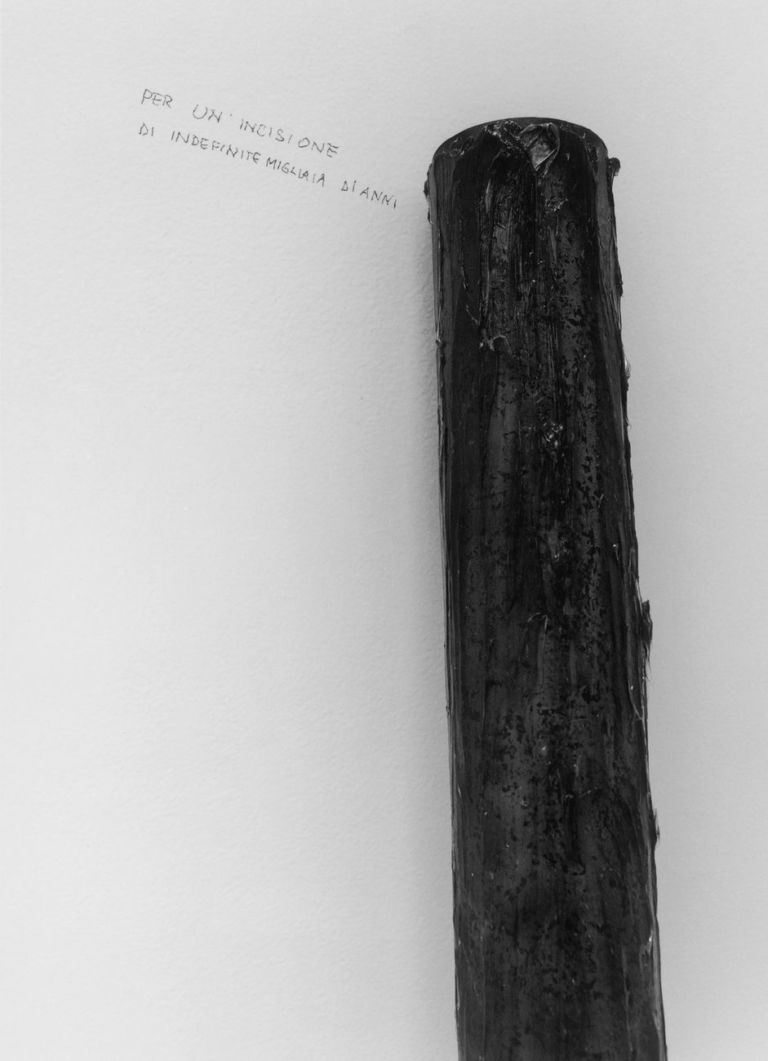 PER UN' INCISIONE
DI INDEFINITE MIGLIAIA DI ANNI